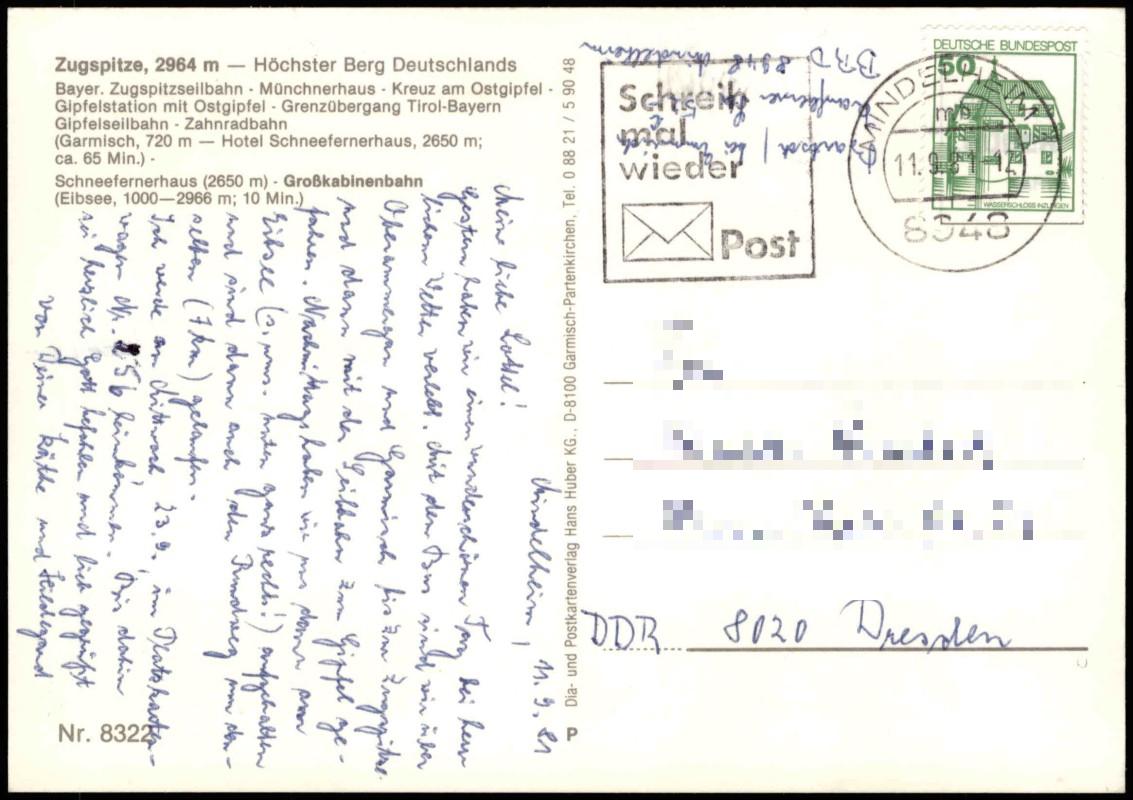 Zugspitze, 2964 m — Höchster Berg Deutschlands
Bayer. Zugspitzseilbahn · Münchnerhaus · Kreuz am Ostgipfel ·
Gipfelstation mit Ostgipfel · Grenzübergang Tirol-Bayern
Gipfelseilbahn · Zahnradbahn
(Garmisch, 720 m — Hotel Schneefernerhaus, 2650 m;
ca. 65 Min.) ·
Schneefernerhaus (2650 m) · Großkabinenbahn
(Eibsee, 1000—2966 m; 10 Min.)
Mindelheim, 11.9.81
Meine liebe Lottel!
Gestern haben wir einen wunderschönen Tag bei herr-
lichem Wetter verlebt. Mit dem Bus sind wir über
Oberammergau und Garmisch bis zur Zugspitze
und dann mit der Seilbahn zum Gipfel ge-
fahren. Nachmittags haben wir uns dann am
Eibsee (s. ums. unten ganz rechts!) aufgehalten
und sind dann auch den Rundweg um den-
selben (7 km) gelaufen.
Ich werde am Mittwoch 23.9. im
wagen Nr. 256 heimkommen. Bis dahin
sei herzlich Gott befohlen und lieb gegrüßt
von Deiner Käthe und Hildegard
Nr. 8322
Dia- und Postkartenverlag Hans Huber KG., D-8100 Garmisch-Partenkirchen, Tel. 0 88 21 / 5 90 48
P
BRD 8948 Mindelheim
Schreib
mal
wieder
Post
DEUTSCHE BUNDESPOST
50
WASSERSCHLOSS INZLINGEN
MINDELHEIM 1
mb
11.9.81-12
8948
DDR 8020 Dresden